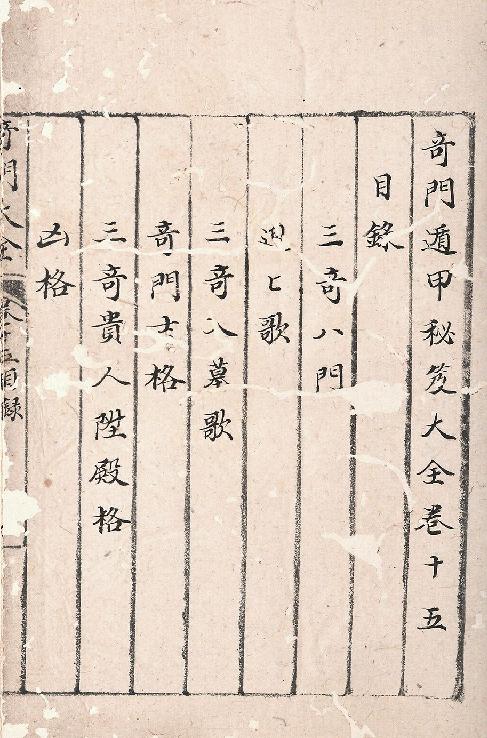 奇門遁甲秘笈大全卷十五
目錄
三奇八門
歌
三奇入墓歌
奇門吉格
三奇貴人陞殿格
凶格
奇門大全 卷十五目錄